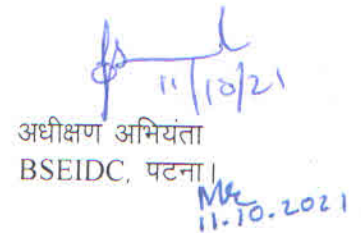 11/10/21
अधीक्षण अभियंता
BSEIDC, पटना।
11.10.2021